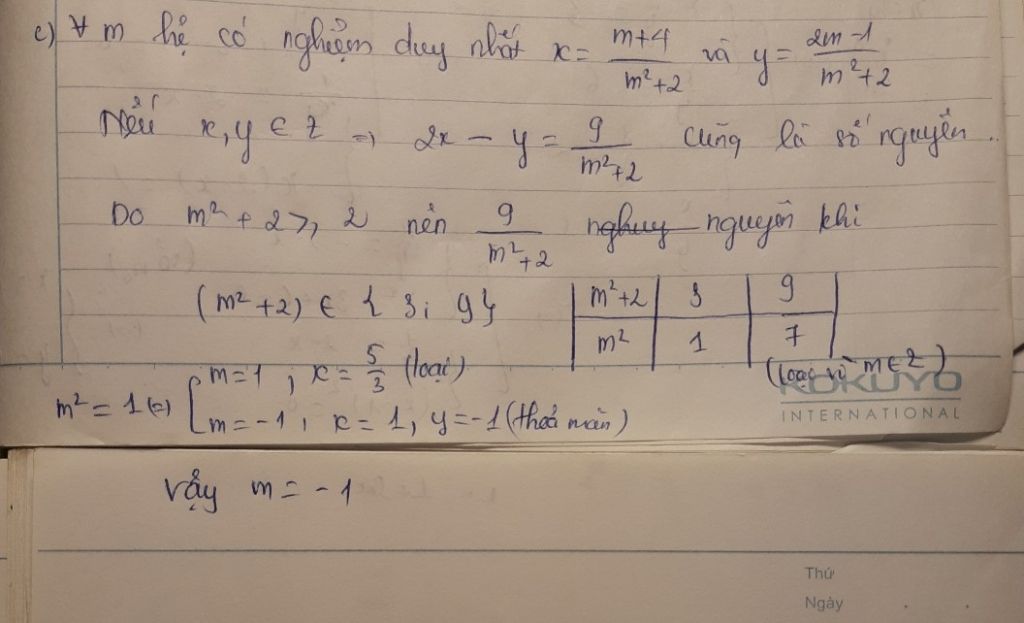 c) ∀ m hệ có nghiệm duy nhất x = \frac{m+4}{m²+2} và y = \frac{2m-1}{m²+2}
Nếu x, y ∈ Z ⇒ 2x - y = \frac{9}{m²+2} cũng là số nguyên.
Do m² + 2 ≥ 2 nên \frac{9}{m²+2} nguyên khi
(m²+2) ∈ { 3; 9}
m²+2 | 3 | 9
m² | 1 | 7
(loại vì m ∈ Z)
m² = 1 (=) [ m = 1 ; x = \frac{5}{3} (loại)
m = -1, x = 1, y = -1 (thoả mãn)
KOKUYO
INTERNATIONAL
Vậy m = -1
Thứ
Ngày